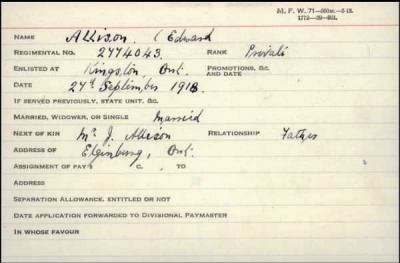 M. F. W. 71—
1772—39—
NAME Allison, ( Edward
REGIMENTAL NO. 2774043. RANK Private
ENLISTED AT Kingston, Ont. PROMOTIONS, &C. AND DATE
DATE 27th September 1918.
IF SERVED PREVIOUSLY, STATE UNIT, &C.
MARRIED, WIDOWER, OR SINGLE Married
NEXT OF KIN Mr J. Allison RELATIONSHIP Father
ADDRESS OF Elginburg, Ont.
ASSIGNMENT OF PAY $ C. TO
ADDRESS
SEPARATION ALLOWANCE, ENTITLED OR NOT
DATE APPLICATION FORWARDED TO DIVISIONAL PAYMASTER
IN WHOSE FAVOUR